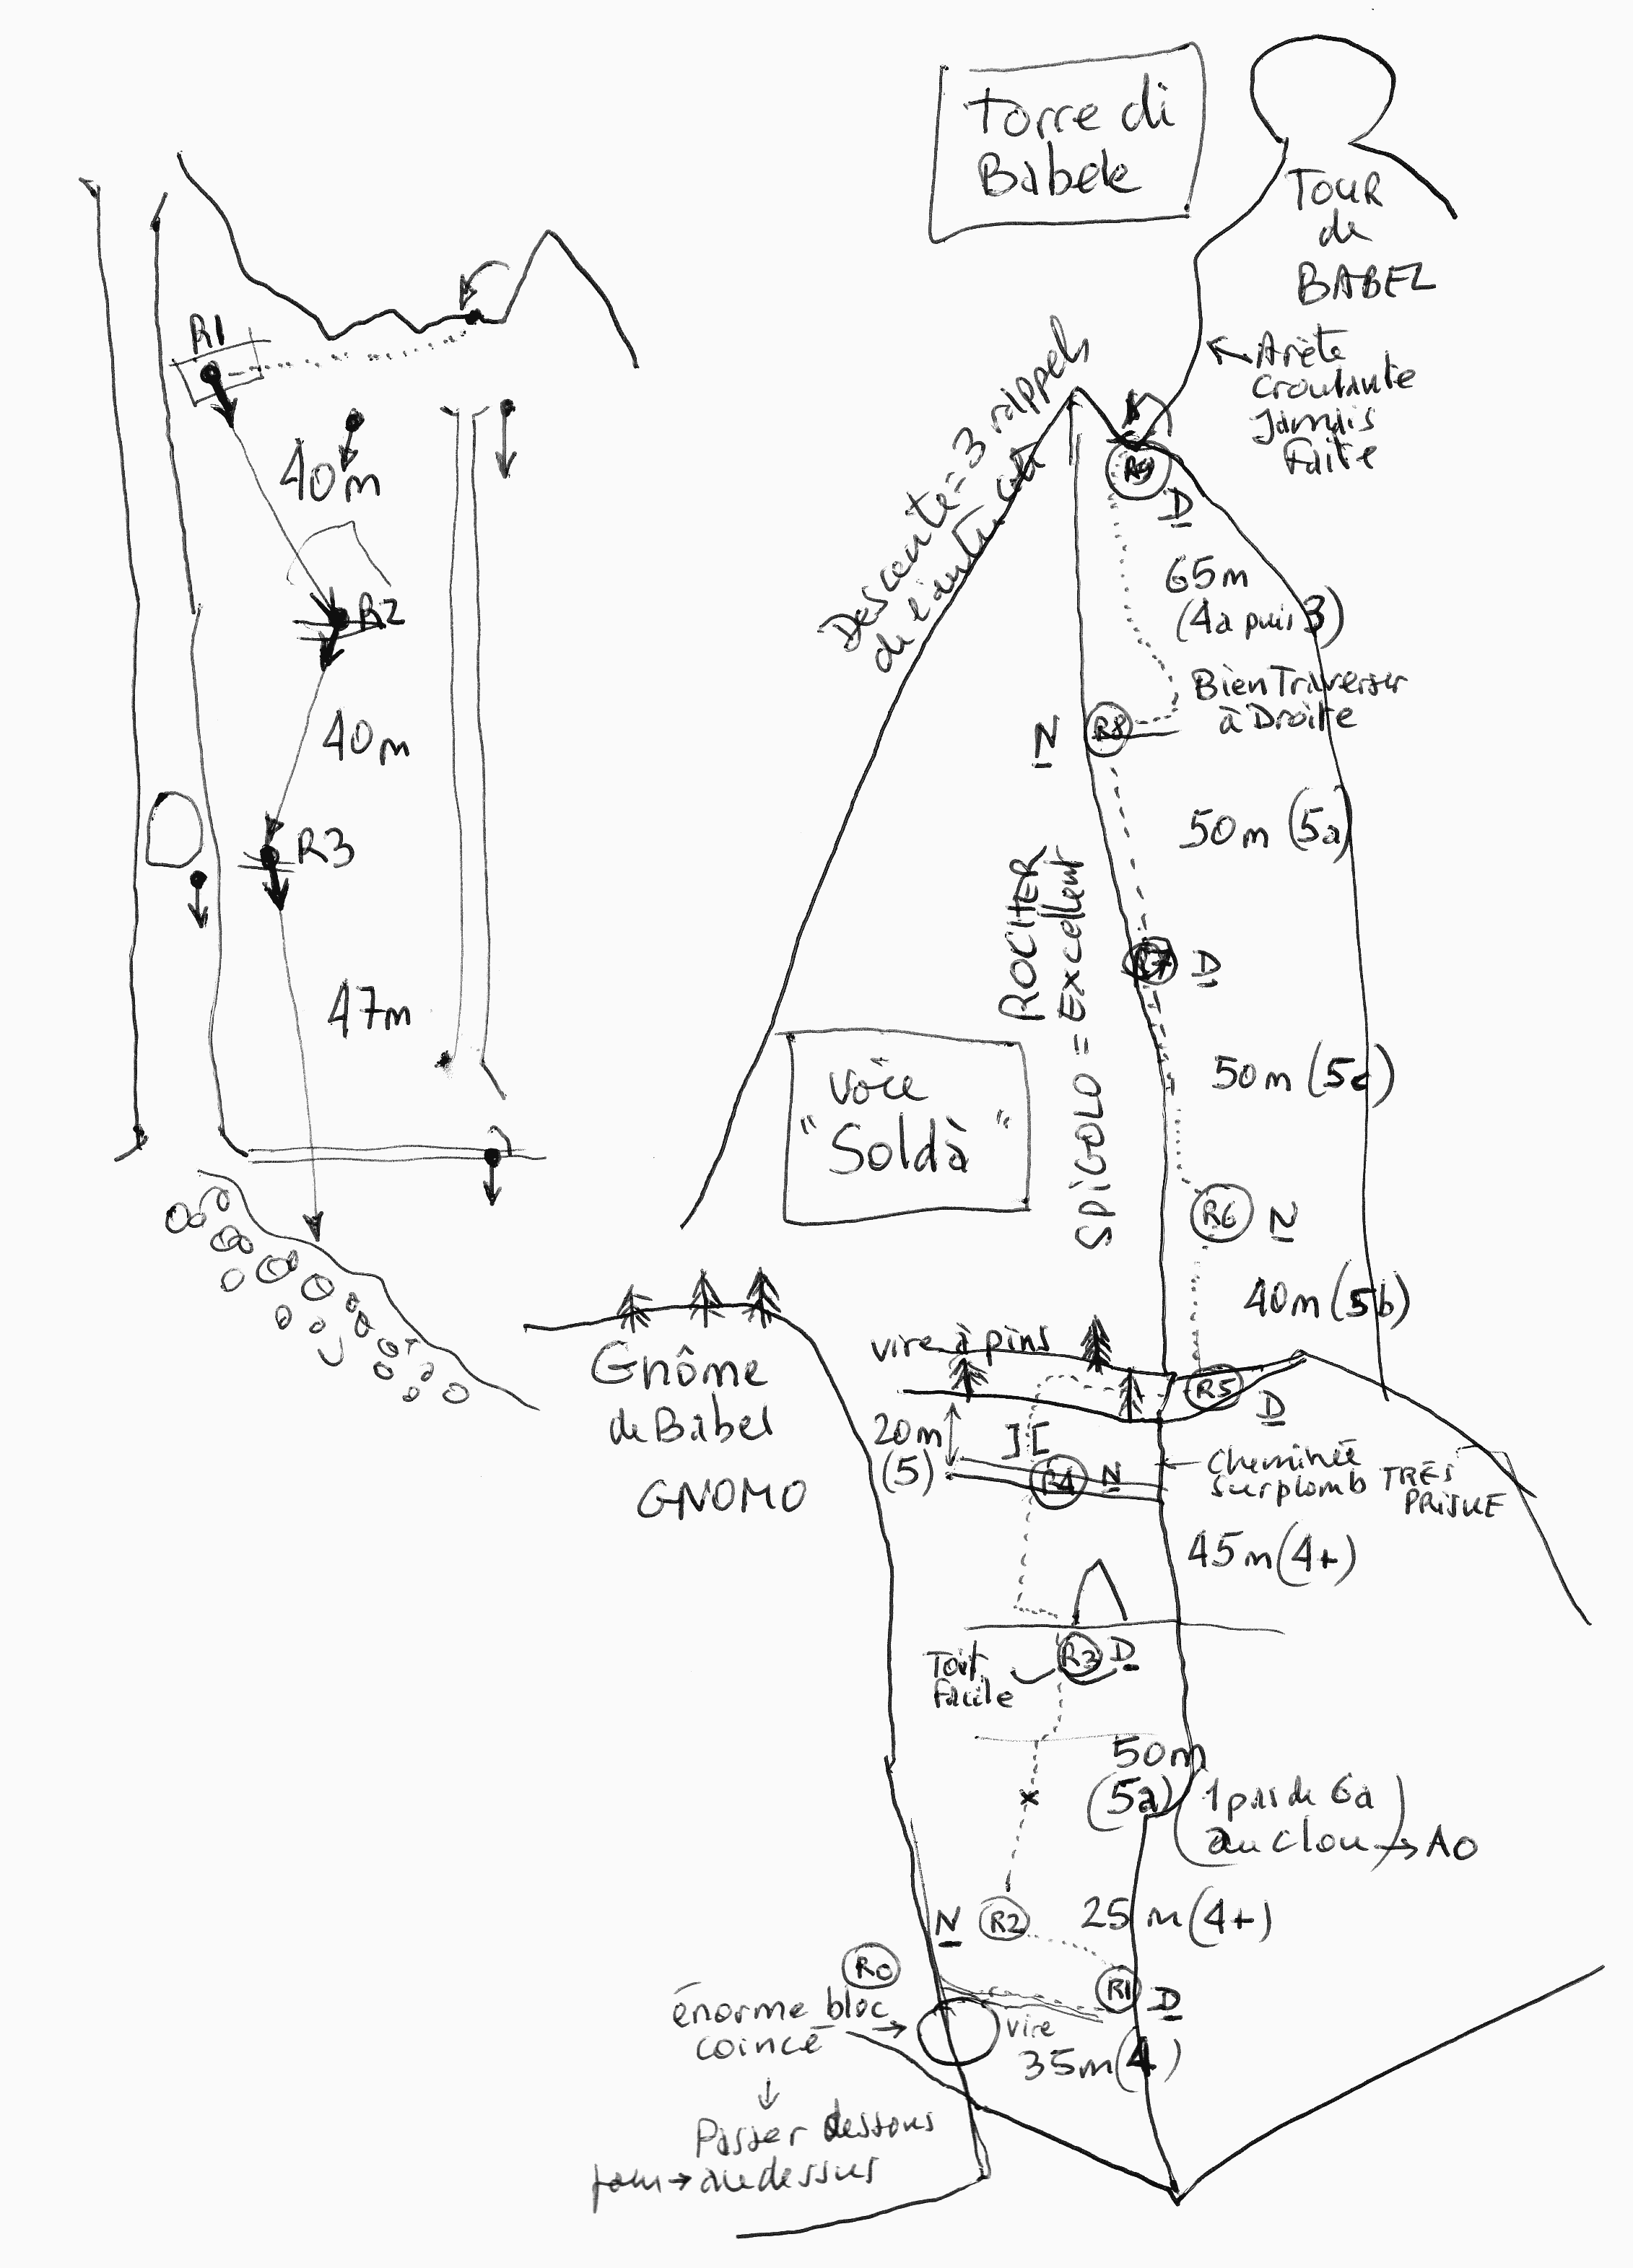 Torre di
Babele
TOUR
de
BABEL
Arête
croulante
Jamais
faite
Descente = 3 rappels
de l'autre côté
R9
D
65m
(4a puis 3)
Bien Traverser
à Droite
N
R8
50m (5a)
ROCHER
SPIGOLO = Excellent
R7
D
50m (5c)
voie
"Soldà"
R6
N
40m (5b)
vire à pins
R5
D
20m
(5)
R4
N
cheminée
surplomb TRÈS
PRISUE
45m (4+)
Gnôme
de Babel
GNOMO
R3
D
Toit
facile
50m
(5a)
1 pas de 6a
au clou → A0
N
R2
25m (4+)
R0
R1
D
énorme bloc →
coincé
vire
35m (4)
Passer dessous
→ au dessus
R1
40m
R2
40m
R3
47m